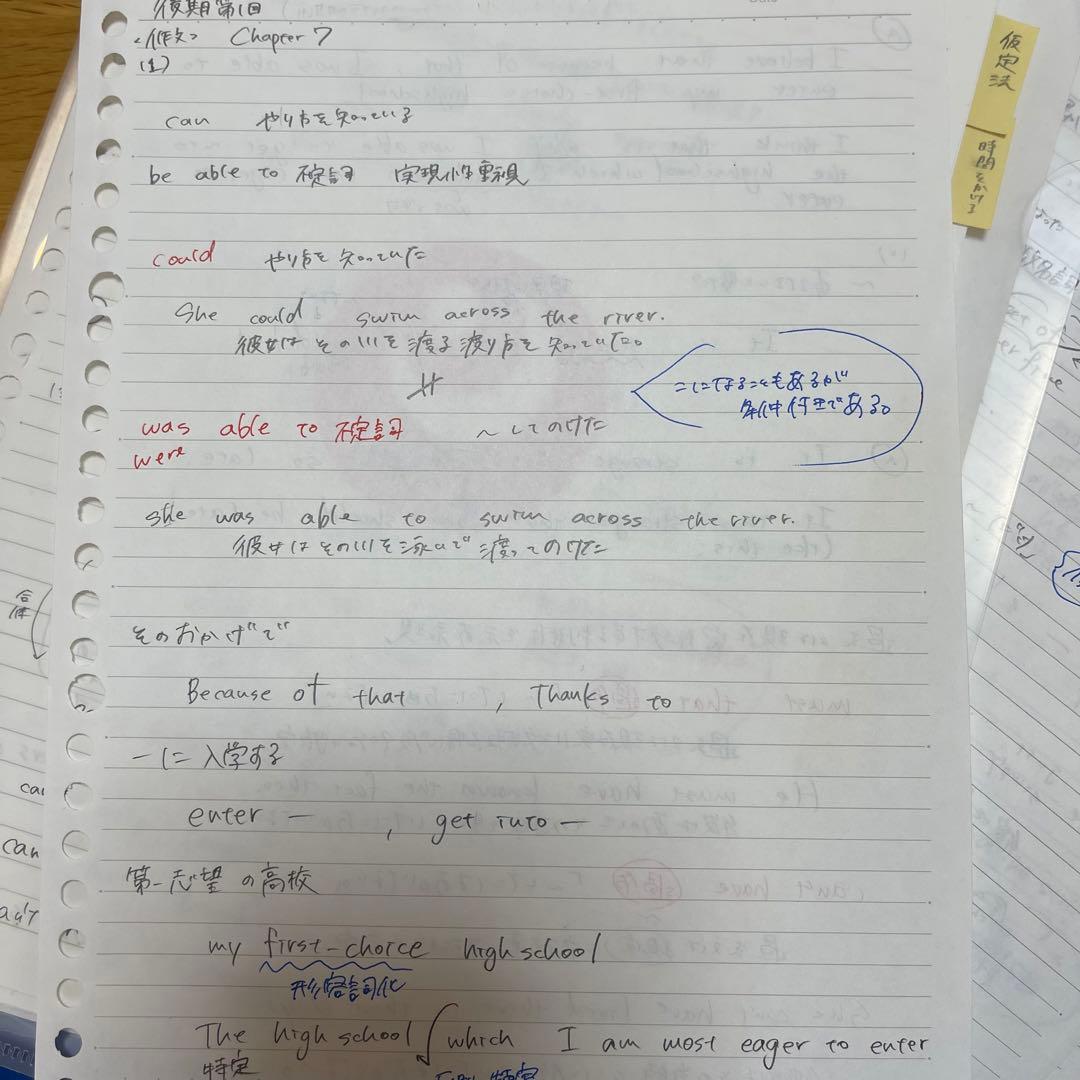 後期第1回
<作文> Chapter 7
(1)
can やり方を知っている
be able to 不定詞 実現性重視
could やり方を知っていた
She could swim across the river.
彼女はその川を渡る渡り方を知っていた。
こになることもあるが
条件付きである。
was able to 不定詞 〜してのけた
were
She was able to swim across the river.
彼女はその川を泳いで渡ってのけた
そのおかげで
Because of that , Thanks to
ーに入学する
enter ー , get into ー
第一志望の高校
my first-choice high school
形容詞化
The high school which I am most eager to enter
特定
仮定法
時間をかける
合体
can